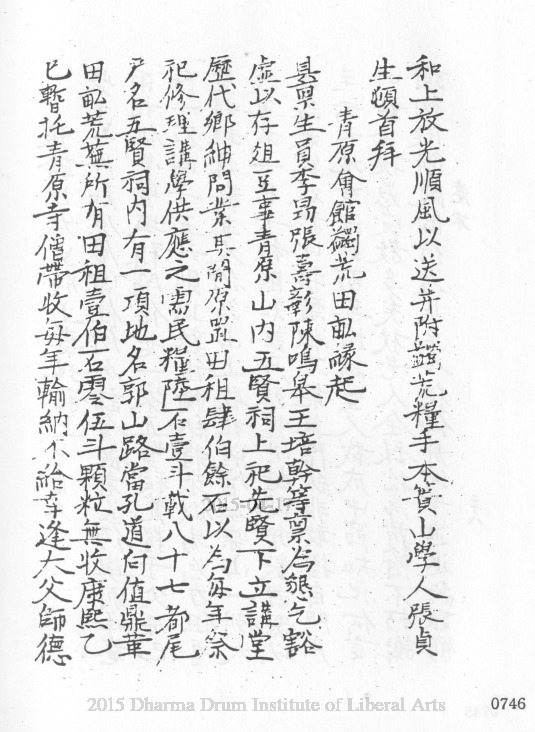 和上放光順風以送并附蠲荒糧手本簣山學人張貞
生頓首拜
青原會館蠲荒田畆緣起
具稟生員李昺張壽彰陳鳴皋王培幹等稟為懇乞豁
虛以存俎豆事青原山內五賢祠上祀先賢下立講堂
歷代鄉紳問業其閒原置田租肆伯餘石以為每年祭
祀修理講學供應之需民糧陸石壹斗載八十七都尾
戶名五賢祠內有一項地名郭山路當孔道向值鼎革
田畆荒蕪所有田租壹伯石零伍斗顆粒無收康熙乙
巳暫托青原寺僧帶收每年輸納不給幸逢大父師德
2015 Dharma Drum Institute of Liberal Arts
0746